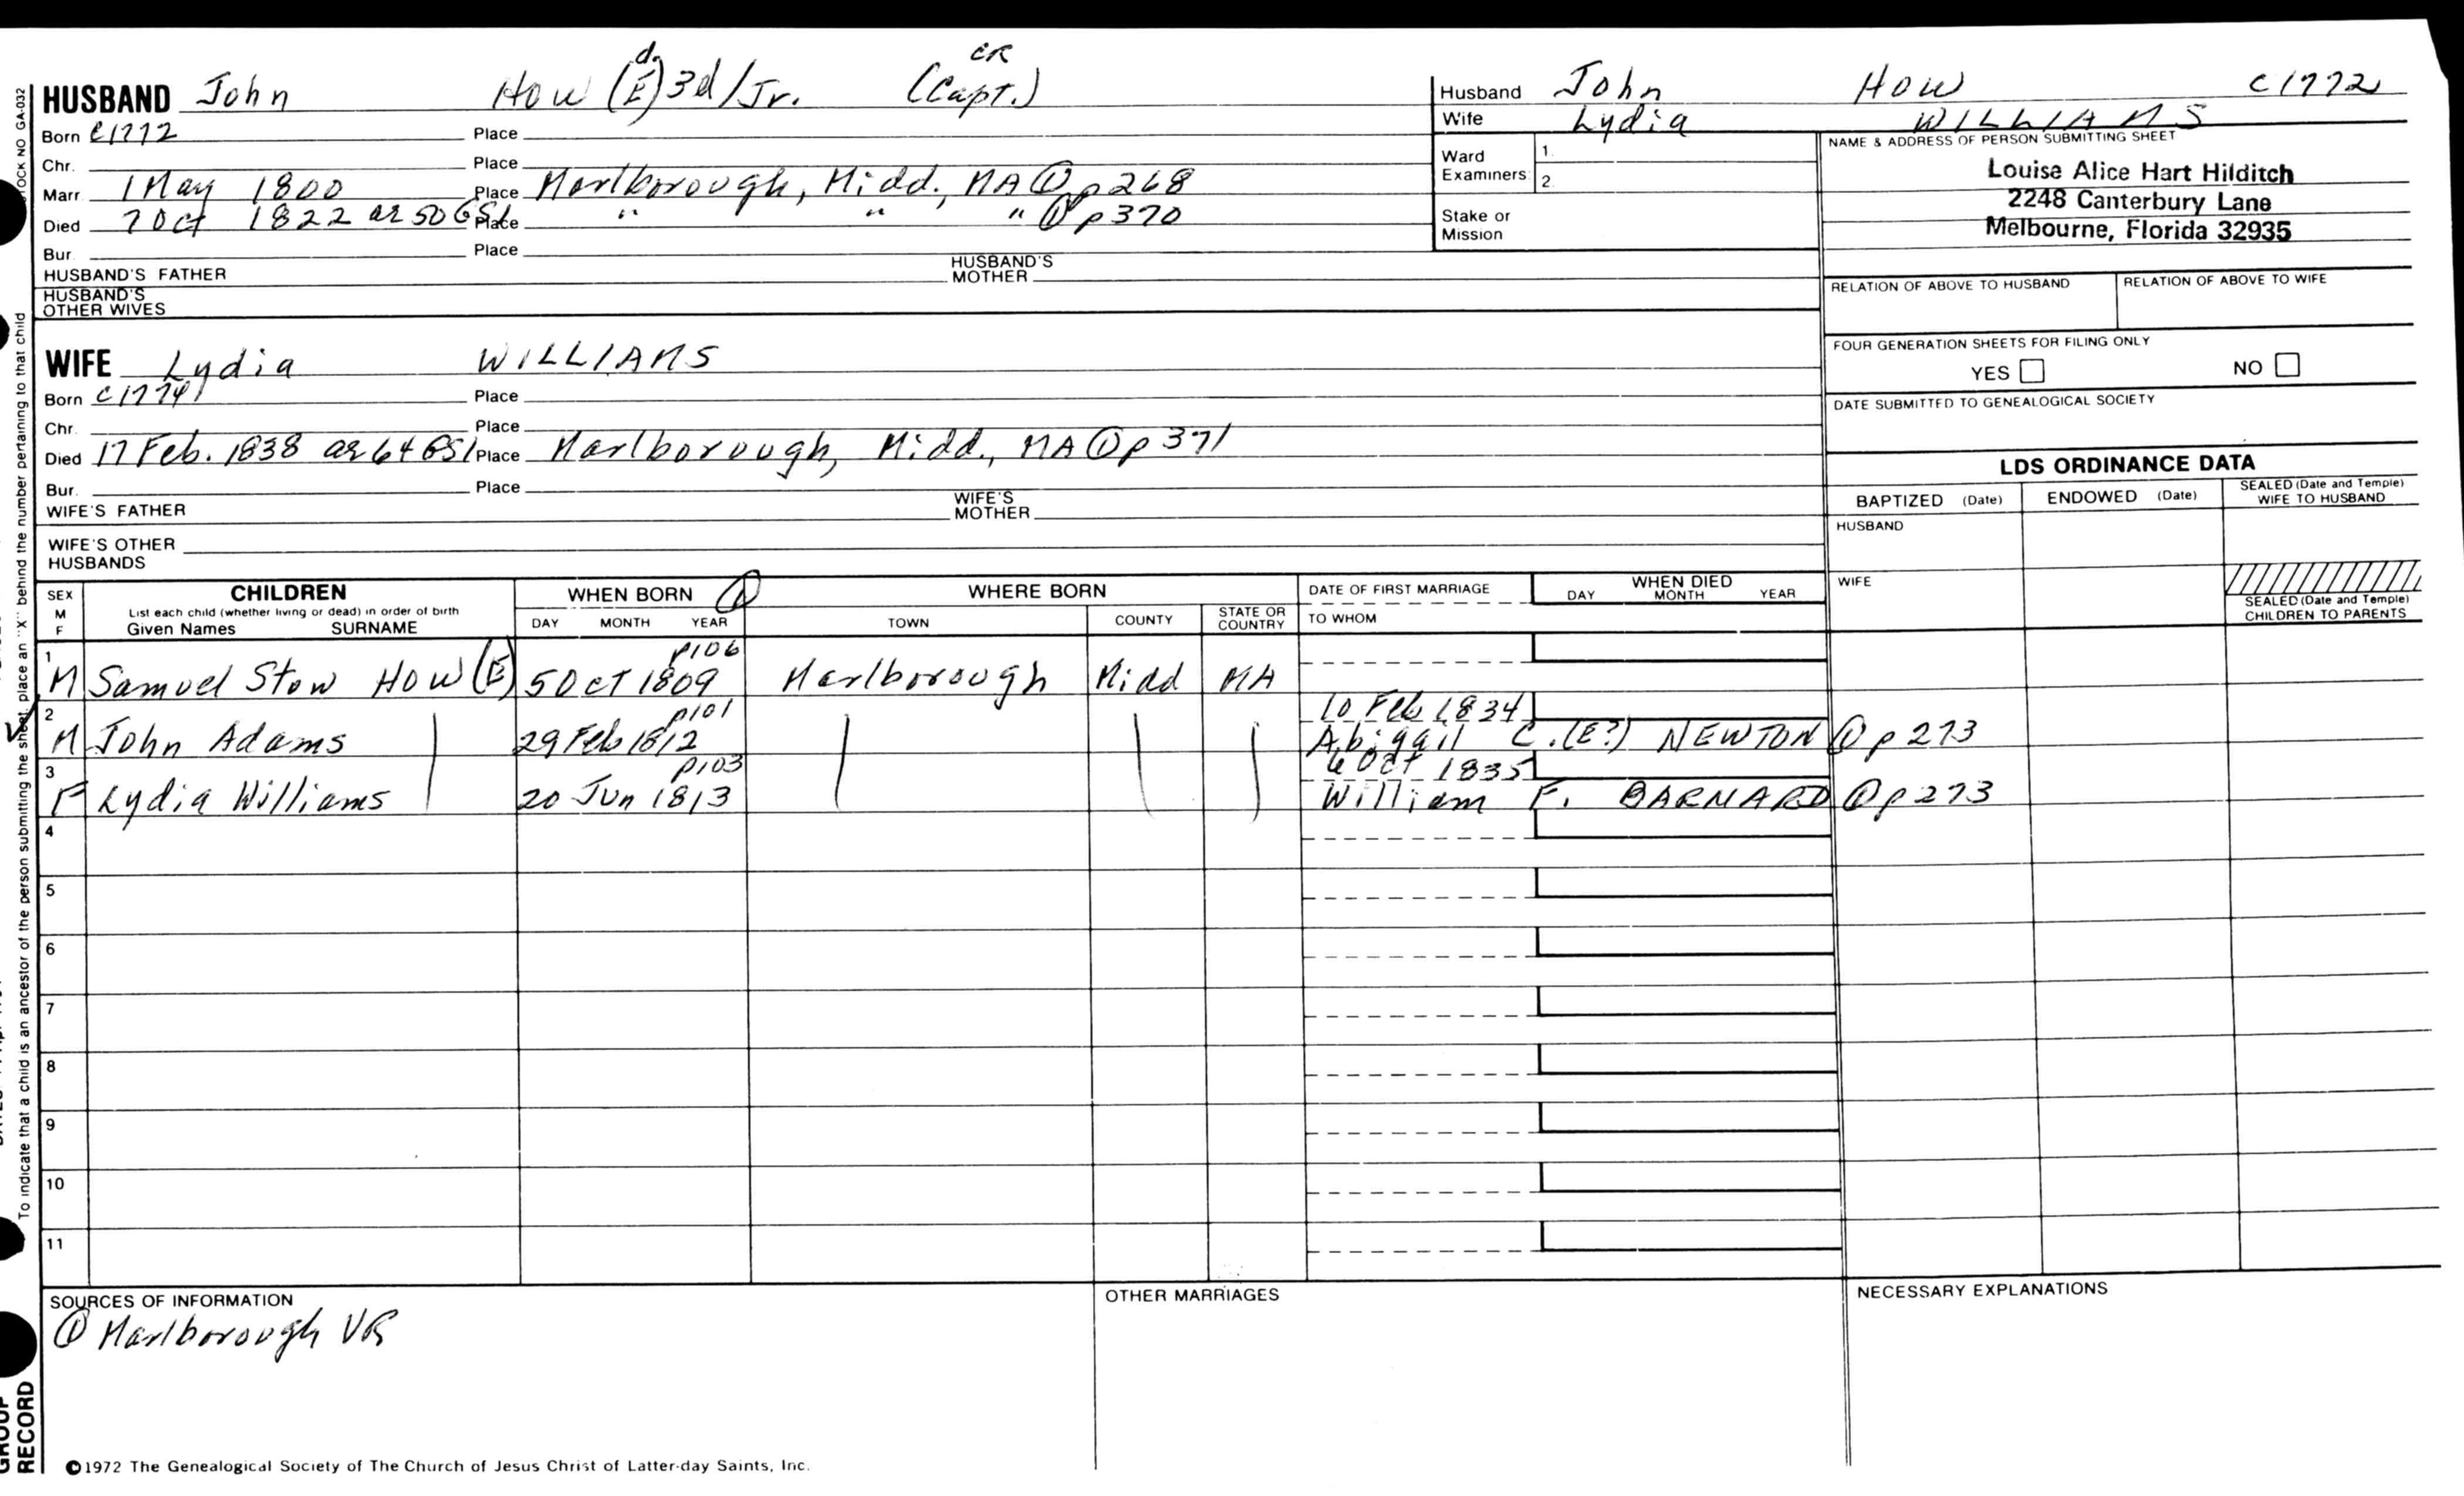 d. CR
HUSBAND John How (E) 3d/Jr. (Capt.)
Born C1772 Place
Chr. Place
Marr. 1 May 1800 Place Marlborough, Midd., MA ① p268
Died 7 Oct 1822 ae 50 GS1 Place " " " ① p370
Bur. Place
HUSBAND'S FATHER HUSBAND'S MOTHER
HUSBAND'S OTHER WIVES
Husband John How C1772
Wife Lydia WILLIAMS
Ward Examiners 1. 2.
Stake or Mission
NAME & ADDRESS OF PERSON SUBMITTING SHEET
Louise Alice Hart Hilditch
2248 Canterbury Lane
Melbourne, Florida 32935
RELATION OF ABOVE TO HUSBAND RELATION OF ABOVE TO WIFE
FOUR GENERATION SHEETS FOR FILING ONLY
YES NO
DATE SUBMITTED TO GENEALOGICAL SOCIETY
WIFE Lydia WILLIAMS
Born C1774 Place
Chr. Place
Died 17 Feb. 1838 ae 64 GS1 Place Marlborough, Midd., MA ① p371
Bur. Place
WIFE'S FATHER WIFE'S MOTHER
WIFE'S OTHER HUSBANDS
LDS ORDINANCE DATA
BAPTIZED (Date) ENDOWED (Date) SEALED (Date and Temple) WIFE TO HUSBAND
HUSBAND
WIFE
SEALED (Date and Temple) CHILDREN TO PARENTS
SEX M F CHILDREN WHEN BORN ① WHERE BORN DATE OF FIRST MARRIAGE WHEN DIED
List each child (whether living or dead) in order of birth DAY MONTH YEAR
Given Names SURNAME DAY MONTH YEAR TOWN COUNTY STATE OR COUNTRY TO WHOM
1 p106
M Samuel Stow How (E) 5 Oct 1809 Marlborough Midd MA
2 p101 10 Feb 1834
M John Adams 29 Feb 1812 Abigail C. (E?) NEWTON ① p273
3 p103 6 Oct 1835
F Lydia Williams 20 Jun 1813 William F. BARNARD ① p273
4
5
6
7
8
9
10
11
SOURCES OF INFORMATION OTHER MARRIAGES NECESSARY EXPLANATIONS
① Marlborough VR
©1972 The Genealogical Society of The Church of Jesus Christ of Latter-day Saints, Inc.
STOCK NO GA-032
To indicate that a child is an ancestor of the person submitting the sheet, place an "X" behind the number pertaining to that child
GROUP
RECORD